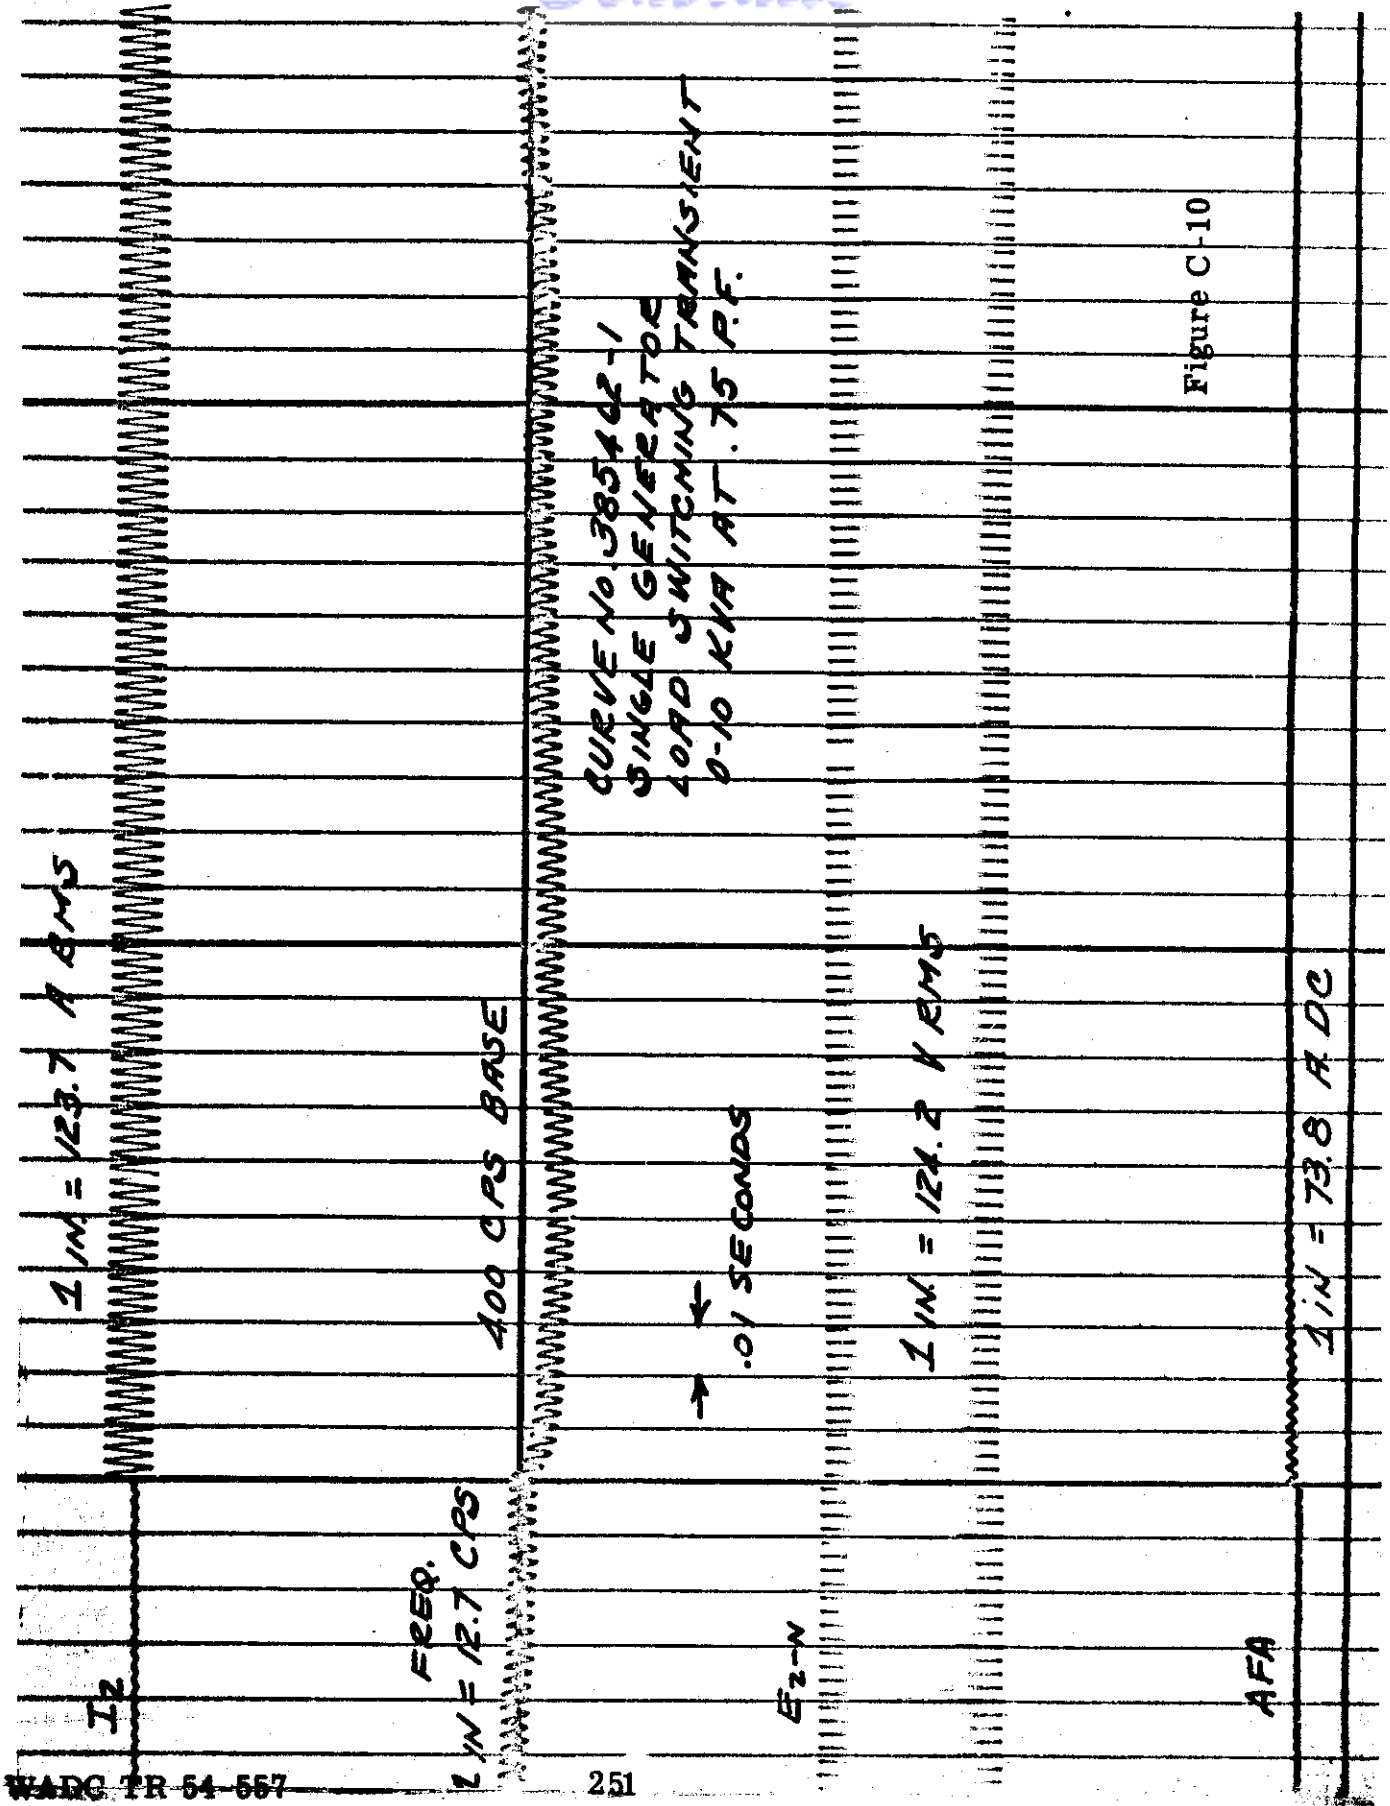 I2
1 IN. = 123.7 A RMS
FREQ.
1 IN = 12.7 CPS
400 CPS BASE
CURVE No. 385462-1
SINGLE GENERATOR
LOAD SWITCHING TRANSIENT
0-10 KVA AT .75 P.F.
.01 SECONDS
E2-N
1 IN. = 124.2 V RMS
AFA
1 IN = 73.8 A. DC
Figure C-10
WADC TR 54-557
251